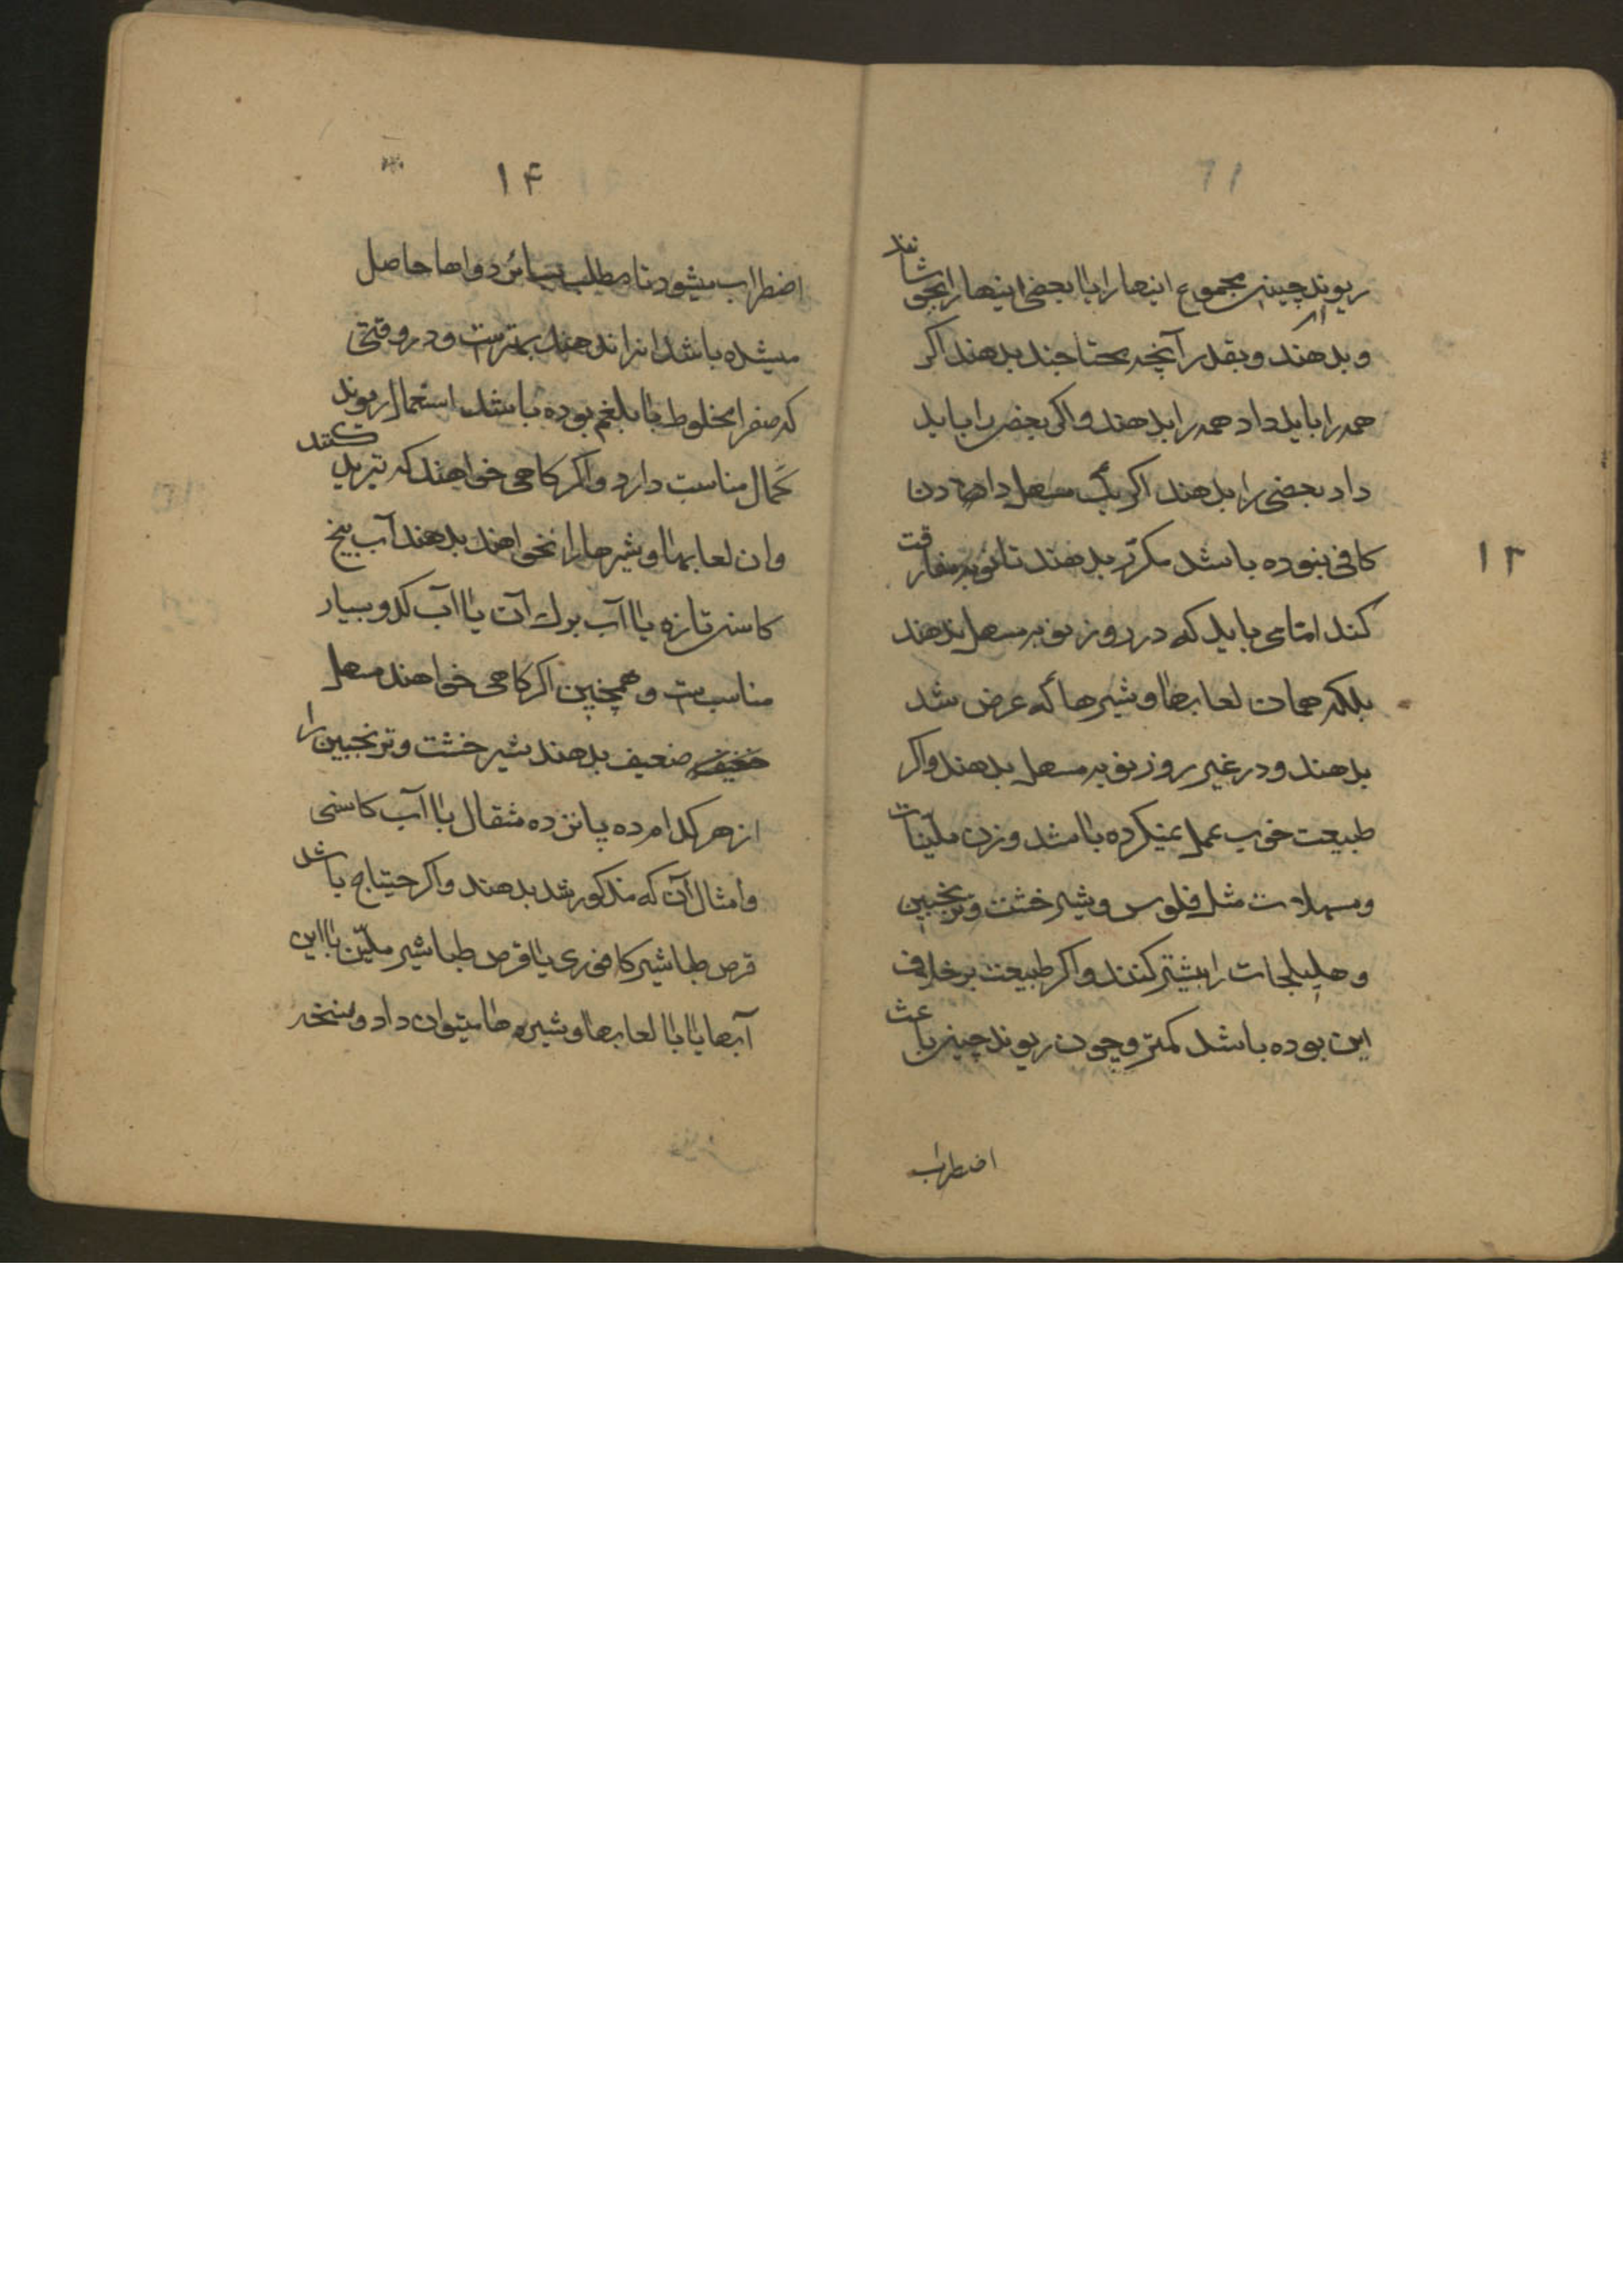 ریوند چینی مجموع اینها را یا بعضی اینها را بجوشانند
و بدهند و بقدر آنچه محتاجند بدهند اکر
همه را باید داد همه را بدهند و اکر بعضی را باید
داد بعضی را بدهند اکر یک مسهل دادن
کافی نبوده باشد مکرّر بدهند تا نوبه مفارقت
کند امّا می باید که در روز نوبه مسهل ندهند
بلکه همان لعابها و شیرها که عرض شد
بدهند و در غیر روز نوبه مسهل بدهند و اکر
طبیعت خوب عمل نمیکرده باشد وزن ملیّنات
و مسهلات مثل فلوس و شیر خشت و ترنجبین
و هلیلجات را بیشتر کنند و اکر طبیعت بر خلاف
این بوده باشد کمتر و چون ریوند چینی باعث
اضطراب
۱۳
۱۴
اضطراب میشود تا مطلب بسائر دواها حاصل
میشده باشد انرا ندهند بهترست و در وقتی
که صفرا مخلوط با بلغم بوده باشد استعمال ریوند
کمال مناسبت دارد و اکر کاهی خواهند که تبرید کنند
و ان لعابها و شیرها را نخواهند بدهند آب بیخ
کاسنی تازه یا آب برك آن یا آب کدو بسیار
مناسبست و همچنین اکر کاهی خواهند مسهل
ضعیف بدهند شیر خشت و ترنجبین را
از هر کدام ده پانزده مثقال با آب کاسنی
و امثال آن که مذکور شد بدهند و اکر حیتاج باشد
قرص طباشیر کافوری یا قرص طباشیر ملیّن با این
آبها یا با لعابها و شیره ها میتوان داد و نسخه